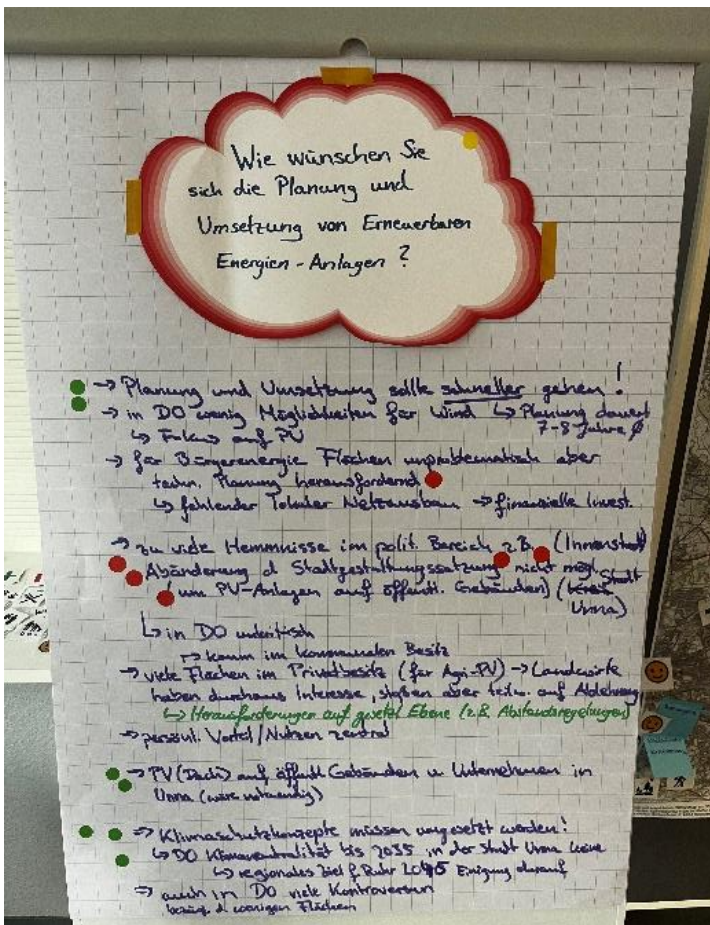 Wie wünschen Sie
sich die Planung und
Umsetzung von Erneuerbaren
Energien - Anlagen ?
→ Planung und Umsetzung sollte schneller gehen !
→ in DO wenig Möglichkeiten für Wind ↳ Planung dauert
7-8 Jahre
↳ Fokus auf PV
→ für Bürgerenergie Flächen unproblematisch aber
techn. Planung herausfordernd
↳ fehlender lokaler Netzausbau → finanzielle Invest.
→ zu viele Hemmnisse im polit. Bereich z.B. (Innenstadt)
Abänderung d Stadtgestaltungssatzung nicht mögl.
um PV-Anlagen auf öffentl. Gebäuden) (Stadt
Unna)
↳ in DO unkritisch
→ kaum im kommunalen Besitz
→ viele Flächen im Privatbesitz (für Agri-PV) → Landwirte
haben durchaus Interesse, stoßen aber teilw. auf Ablehnung
↳ Herausforderungen auf gesetzl Ebene (z.B. Abstandsregelungen)
→ persönl. Vorteil / Nutzen zentral
→ PV (Dach) auf öffentl Gebäuden u Unternehmen in
Unna (wäre notwendig)
⇒ Klimaschutzkonzepte müssen umgesetzt werden!
↳ DO Klimaneutralität bis 2035 in der Stadt Unna keine
↳ regionales Ziel f. Ruhr 2045 Einigung darauf
⇒ auch in DO viele Kontroversen
bezügl. d wenigen Flächen